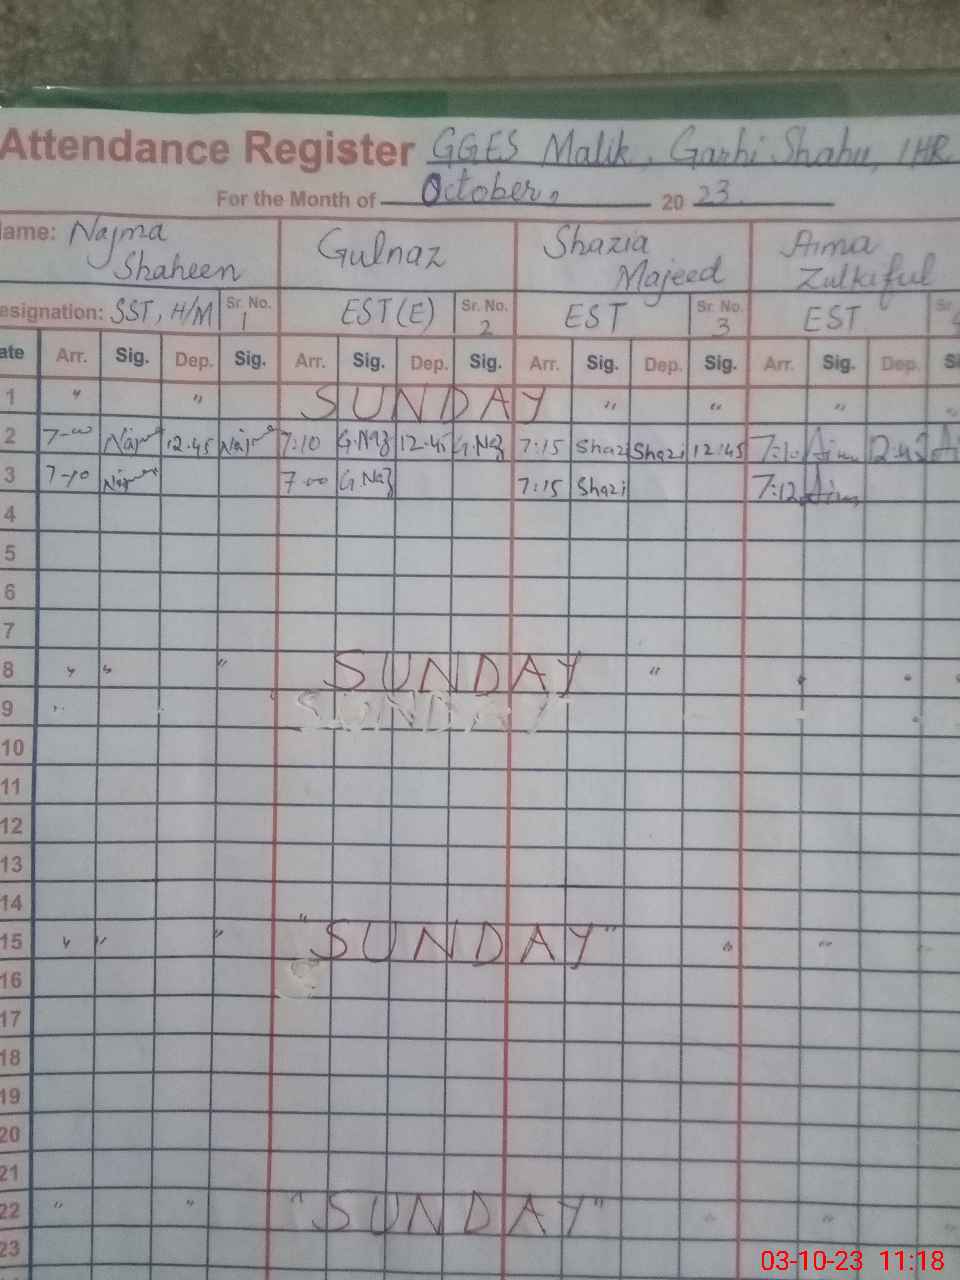 Attendance Register GGES Malik, Garhi Shahu, LHR
For the Month of October, 2023
ame: Najma Shaheen Gulnaz Shazia Majeed Aima Zulkiful
esignation: SST, H/M Sr. No. 1 EST (E) Sr. No. 2 EST Sr. No. 3 EST
ate Arr. Sig. Dep. Sig. Arr. Sig. Dep. Sig. Arr. Sig. Dep. Sig. Arr. Sig. Dep.
1 " " SUNDAY " " "
2 7-00 12.45 7:10 G.Naz 12.45 G.Naz 7:15 Shazi Shazi 12:45
3 7-10 7-00 G.Naz 7:15 Shazi 7:12
4
5
6
7
8 " " " SUNDAY "
9 SUNDAY
10
11
12
13
14
15 " " " "SUNDAY" " "
16
17
18
19
20
21
22 " " "SUNDAY" " "
23
03-10-23 11:18